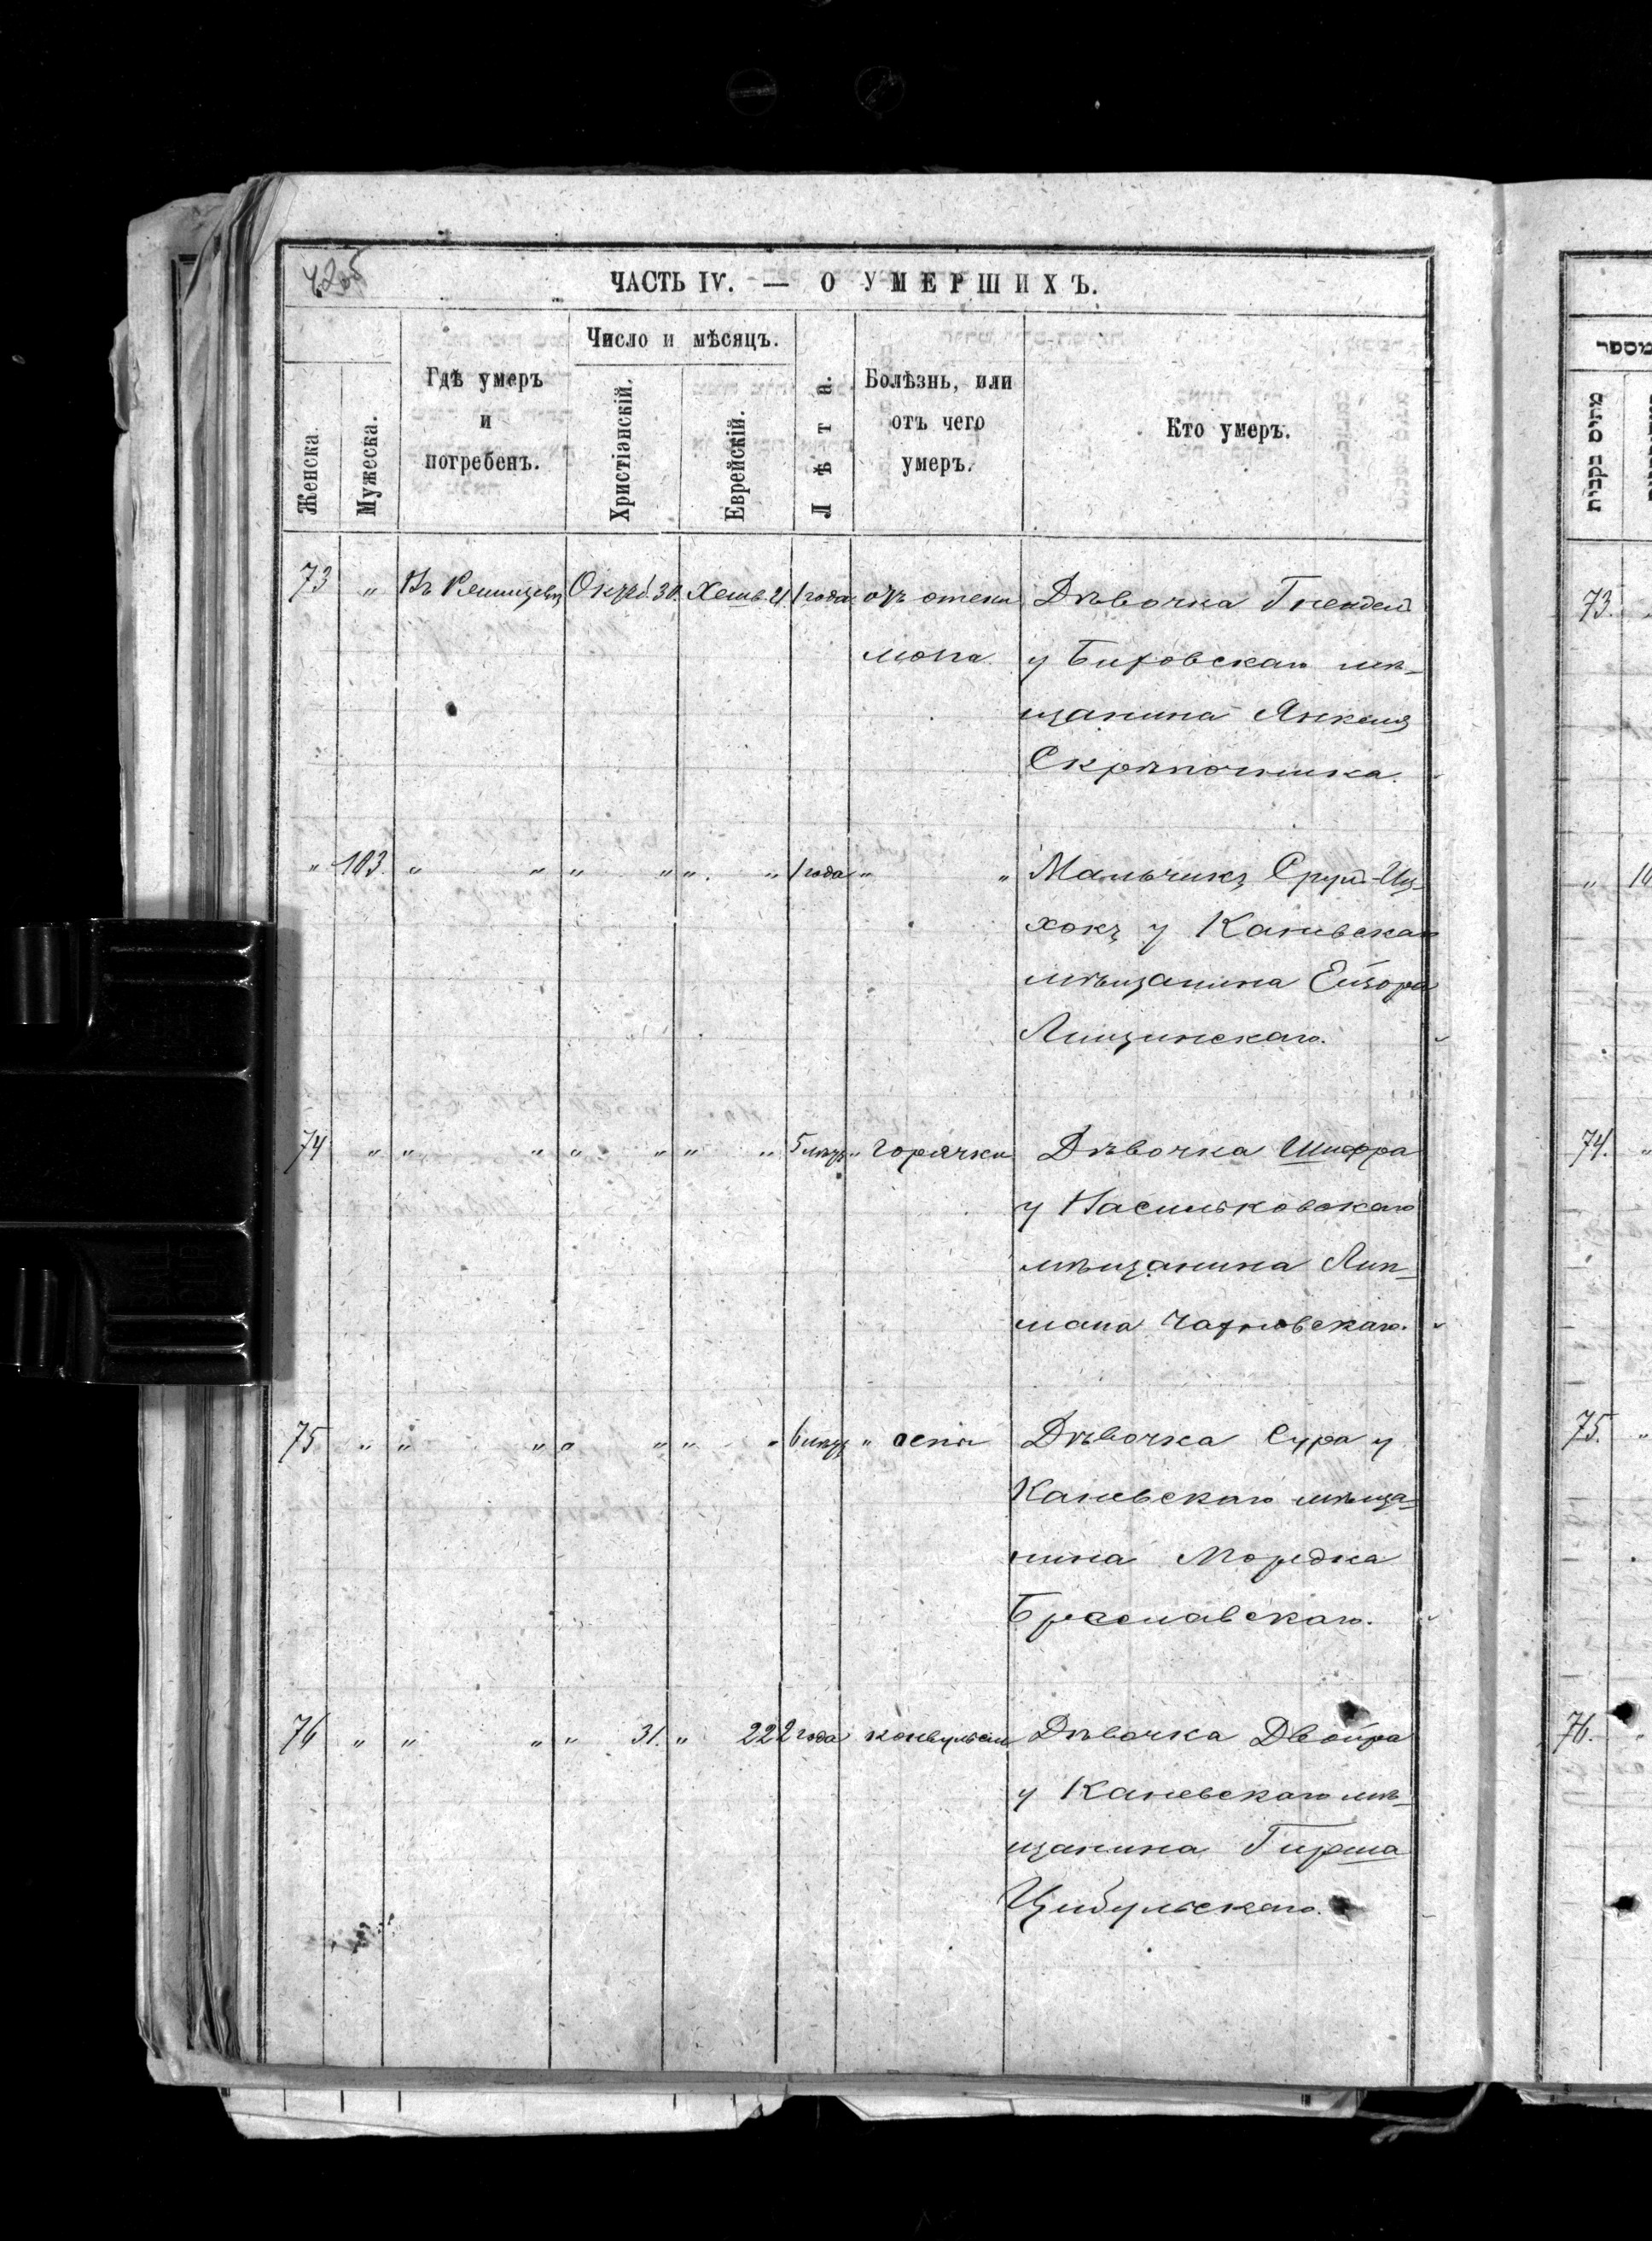 ЧАСТЬ IV. — О УМЕРШИХЪ.
Женска.
Мужеска.
Гдѣ умеръ
и
погребенъ.
Число и мѣсяцъ.
Христіанскій.
Еврейскій.
Лѣта.
Болѣзнь, или
отъ чего
умеръ.
Кто умеръ.
73 " Въ Октяб. 30. Хешв. 21 1 года отъ отека Дѣвочка Гнендель
мозга. у мѣ-
щанина Янкеля
" 103. " " " " ". " 1 года " " Мальчикъ Сруль-Иц-
хокъ у Каневскаго
мѣщанина
Лищинскаго.
74 " " " " " " " 5 мѣц. " горячки Дѣвочка Шифра
у Васильковскаго
мѣщанина Лип-
мана
75 " " " " " " " 6 мѣц. " оспы Дѣвочка Сура у
Каневскаго мѣща-
нина Мордка
Браславскаго.
76 " " " " 31. " 22 2 года конвульсіи Дѣвочка Двойра
у Каневскаго мѣ-
щанина Гирша
Цибульскаго.
מספר
73.
" 10
74. "
75. "
76. "